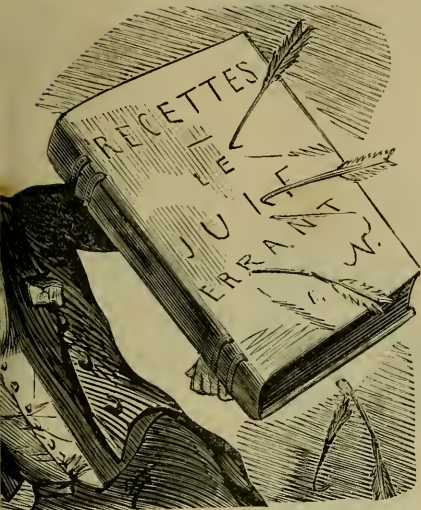 RECETTES
LE
JUIF
ERRANT